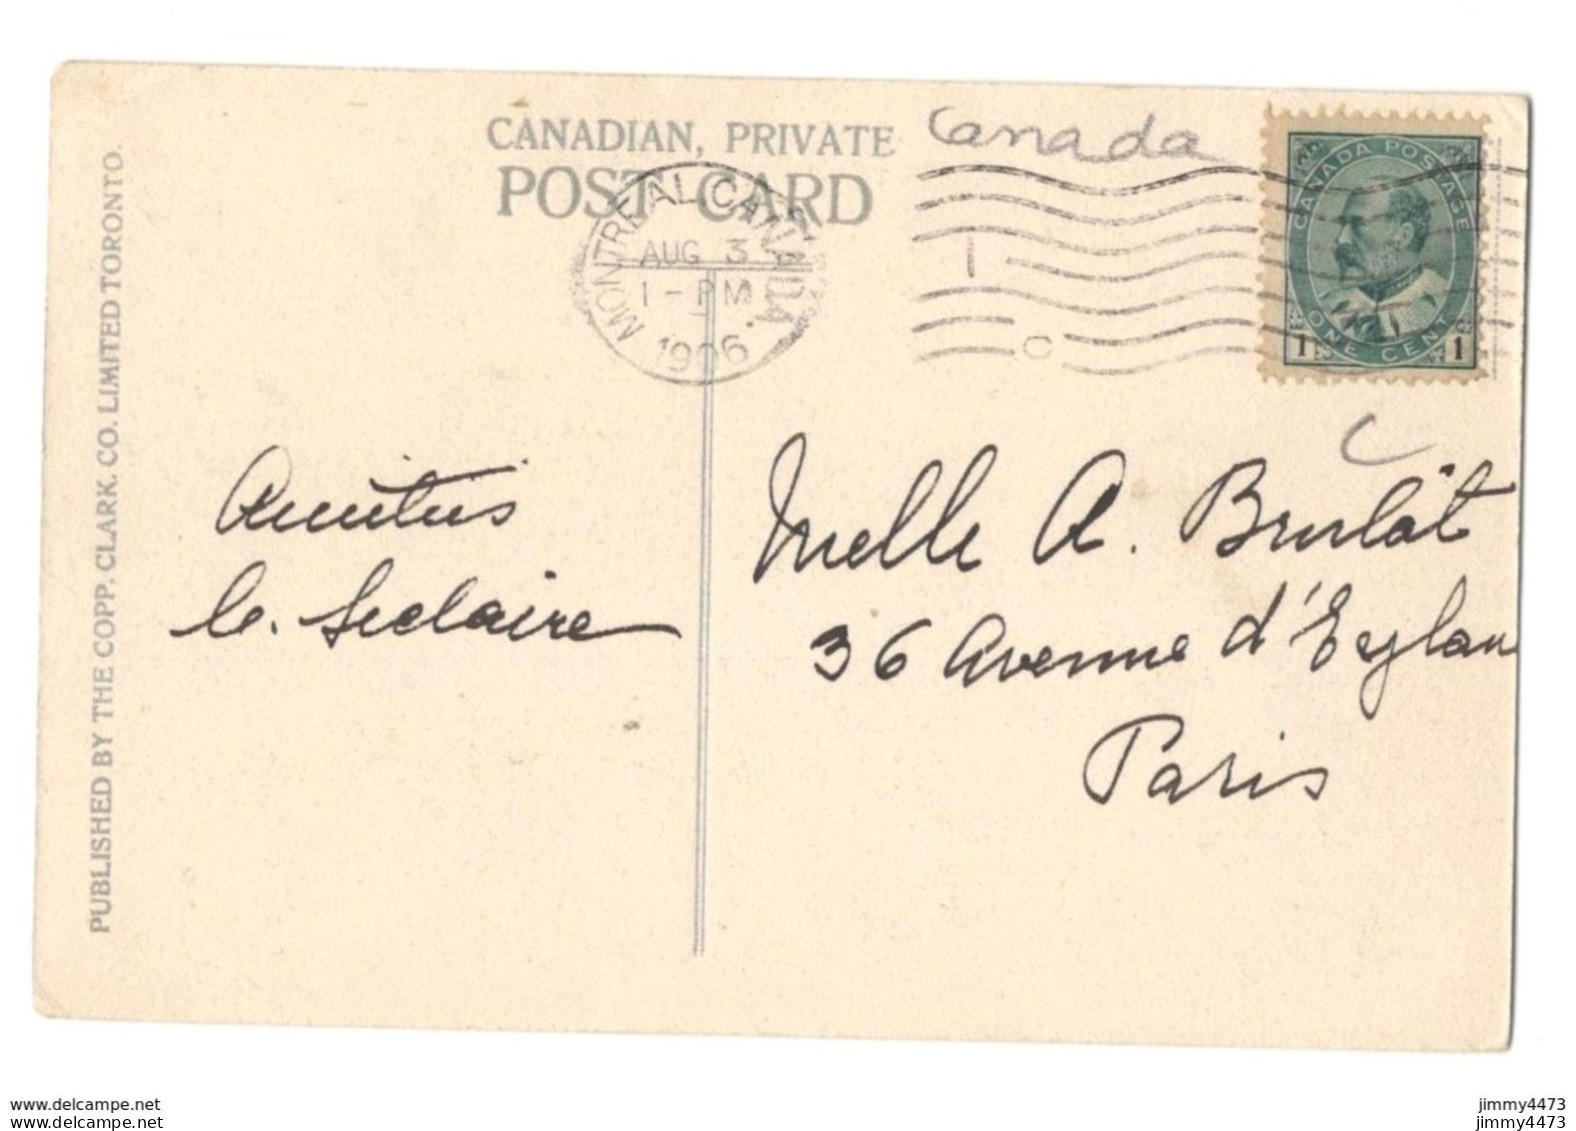 CANADIAN, PRIVATE
POST CARD
Canada
MONTREAL, CANADA.
AUG 3
1 - PM
1906
1
C
CANADA POSTAGE
ONE CENT
1 1
PUBLISHED BY THE COPP. CLARK. CO. LIMITED TORONTO.
Amitiés
Melle A. Brulât
36 Avenue d'Eylau
Paris
www.delcampe.net
www.delcampe.net
jimmy4473
jimmy4473